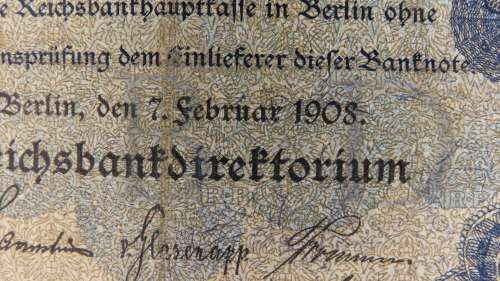 e Reichsbankhauptkasse in Berlin ohne
nsprüfung dem Einlieferer dieser Banknote.
Berlin, den 7. Februar 1908.
eichsbankdirektorium
v. Glasenapp